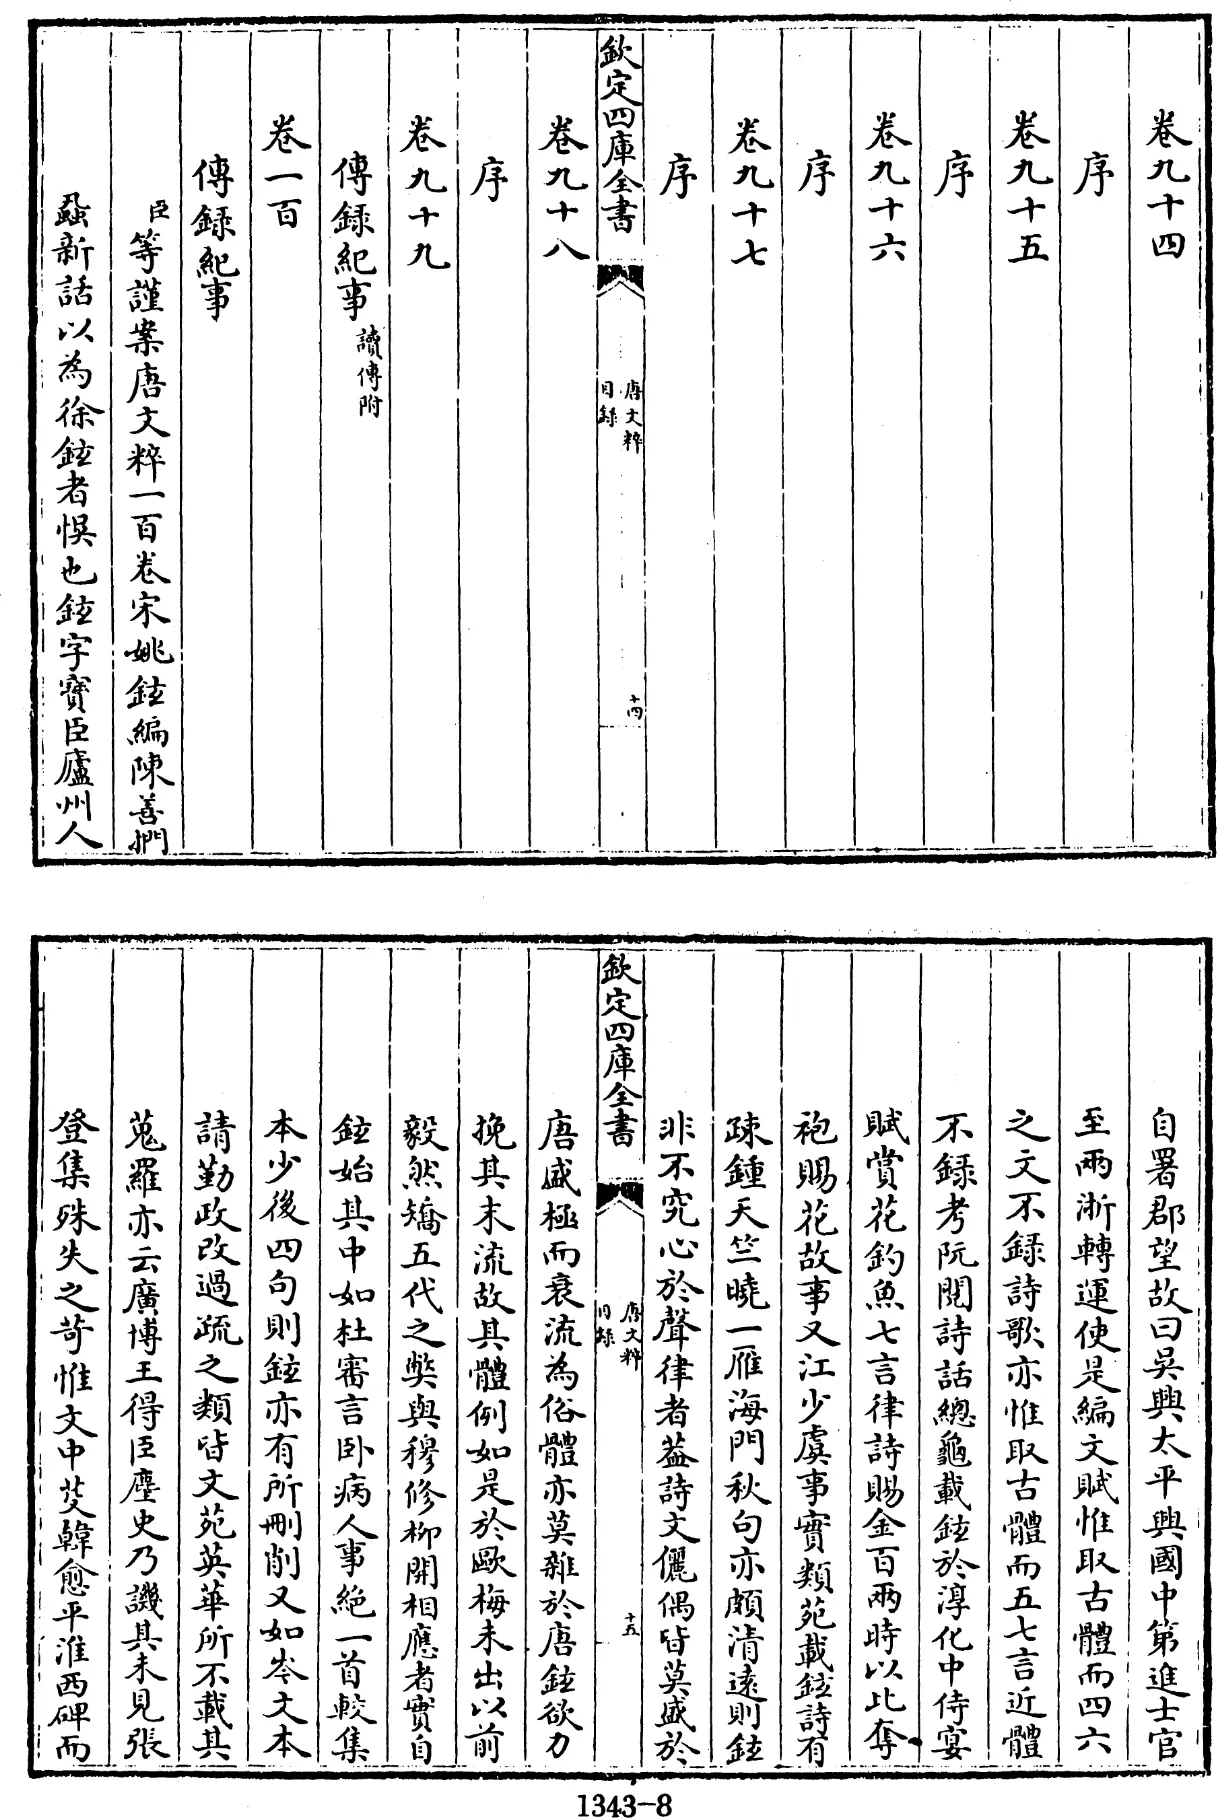 卷九十四
序
卷九十五
序
卷九十六
序
卷九十七
序
欽定四庫全書
唐文粹
目録
十四
卷九十八
序
卷九十九
傳録紀事讀傳附
卷一百
傳録紀事
臣等謹案唐文粹一百卷宋姚鉉編陳善捫
蝨新話以為徐鉉者悞也鉉字寳臣廬州人
自署郡望故曰吳興太平興國中第進士官
至兩淅轉運使是編文賦惟取古體而四六
之文不録詩歌亦惟取古體而五七言近體
不録考阮閱詩話總龜載鉉於淳化中侍宴
賦賞花釣魚七言律詩賜金百兩時以比奪
袍賜花故事又江少虞事實類苑載鉉詩有
疎鍾天竺曉一雁海門秋句亦頗清遠則鉉
非不究心於聲律者葢詩文儷偶皆莫盛於
欽定四庫全書
唐文粹
目録
十五
唐盛極而衰流為俗體亦莫雜於唐鉉欲力
挽其末流故其體例如是於歐梅未出以前
毅然矯五代之弊與穆修栁開相應者實自
鉉始其中如杜審言卧病人事絶一首較集
本少後四句則鉉亦有所刪削又如岑文本
請勤政改過疏之類皆文苑英華所不載其
蒐羅亦云廣博王得臣麈史乃譏其未見張
登集殊失之苛惟文中芟韓愈平淮西碑而
1343-8